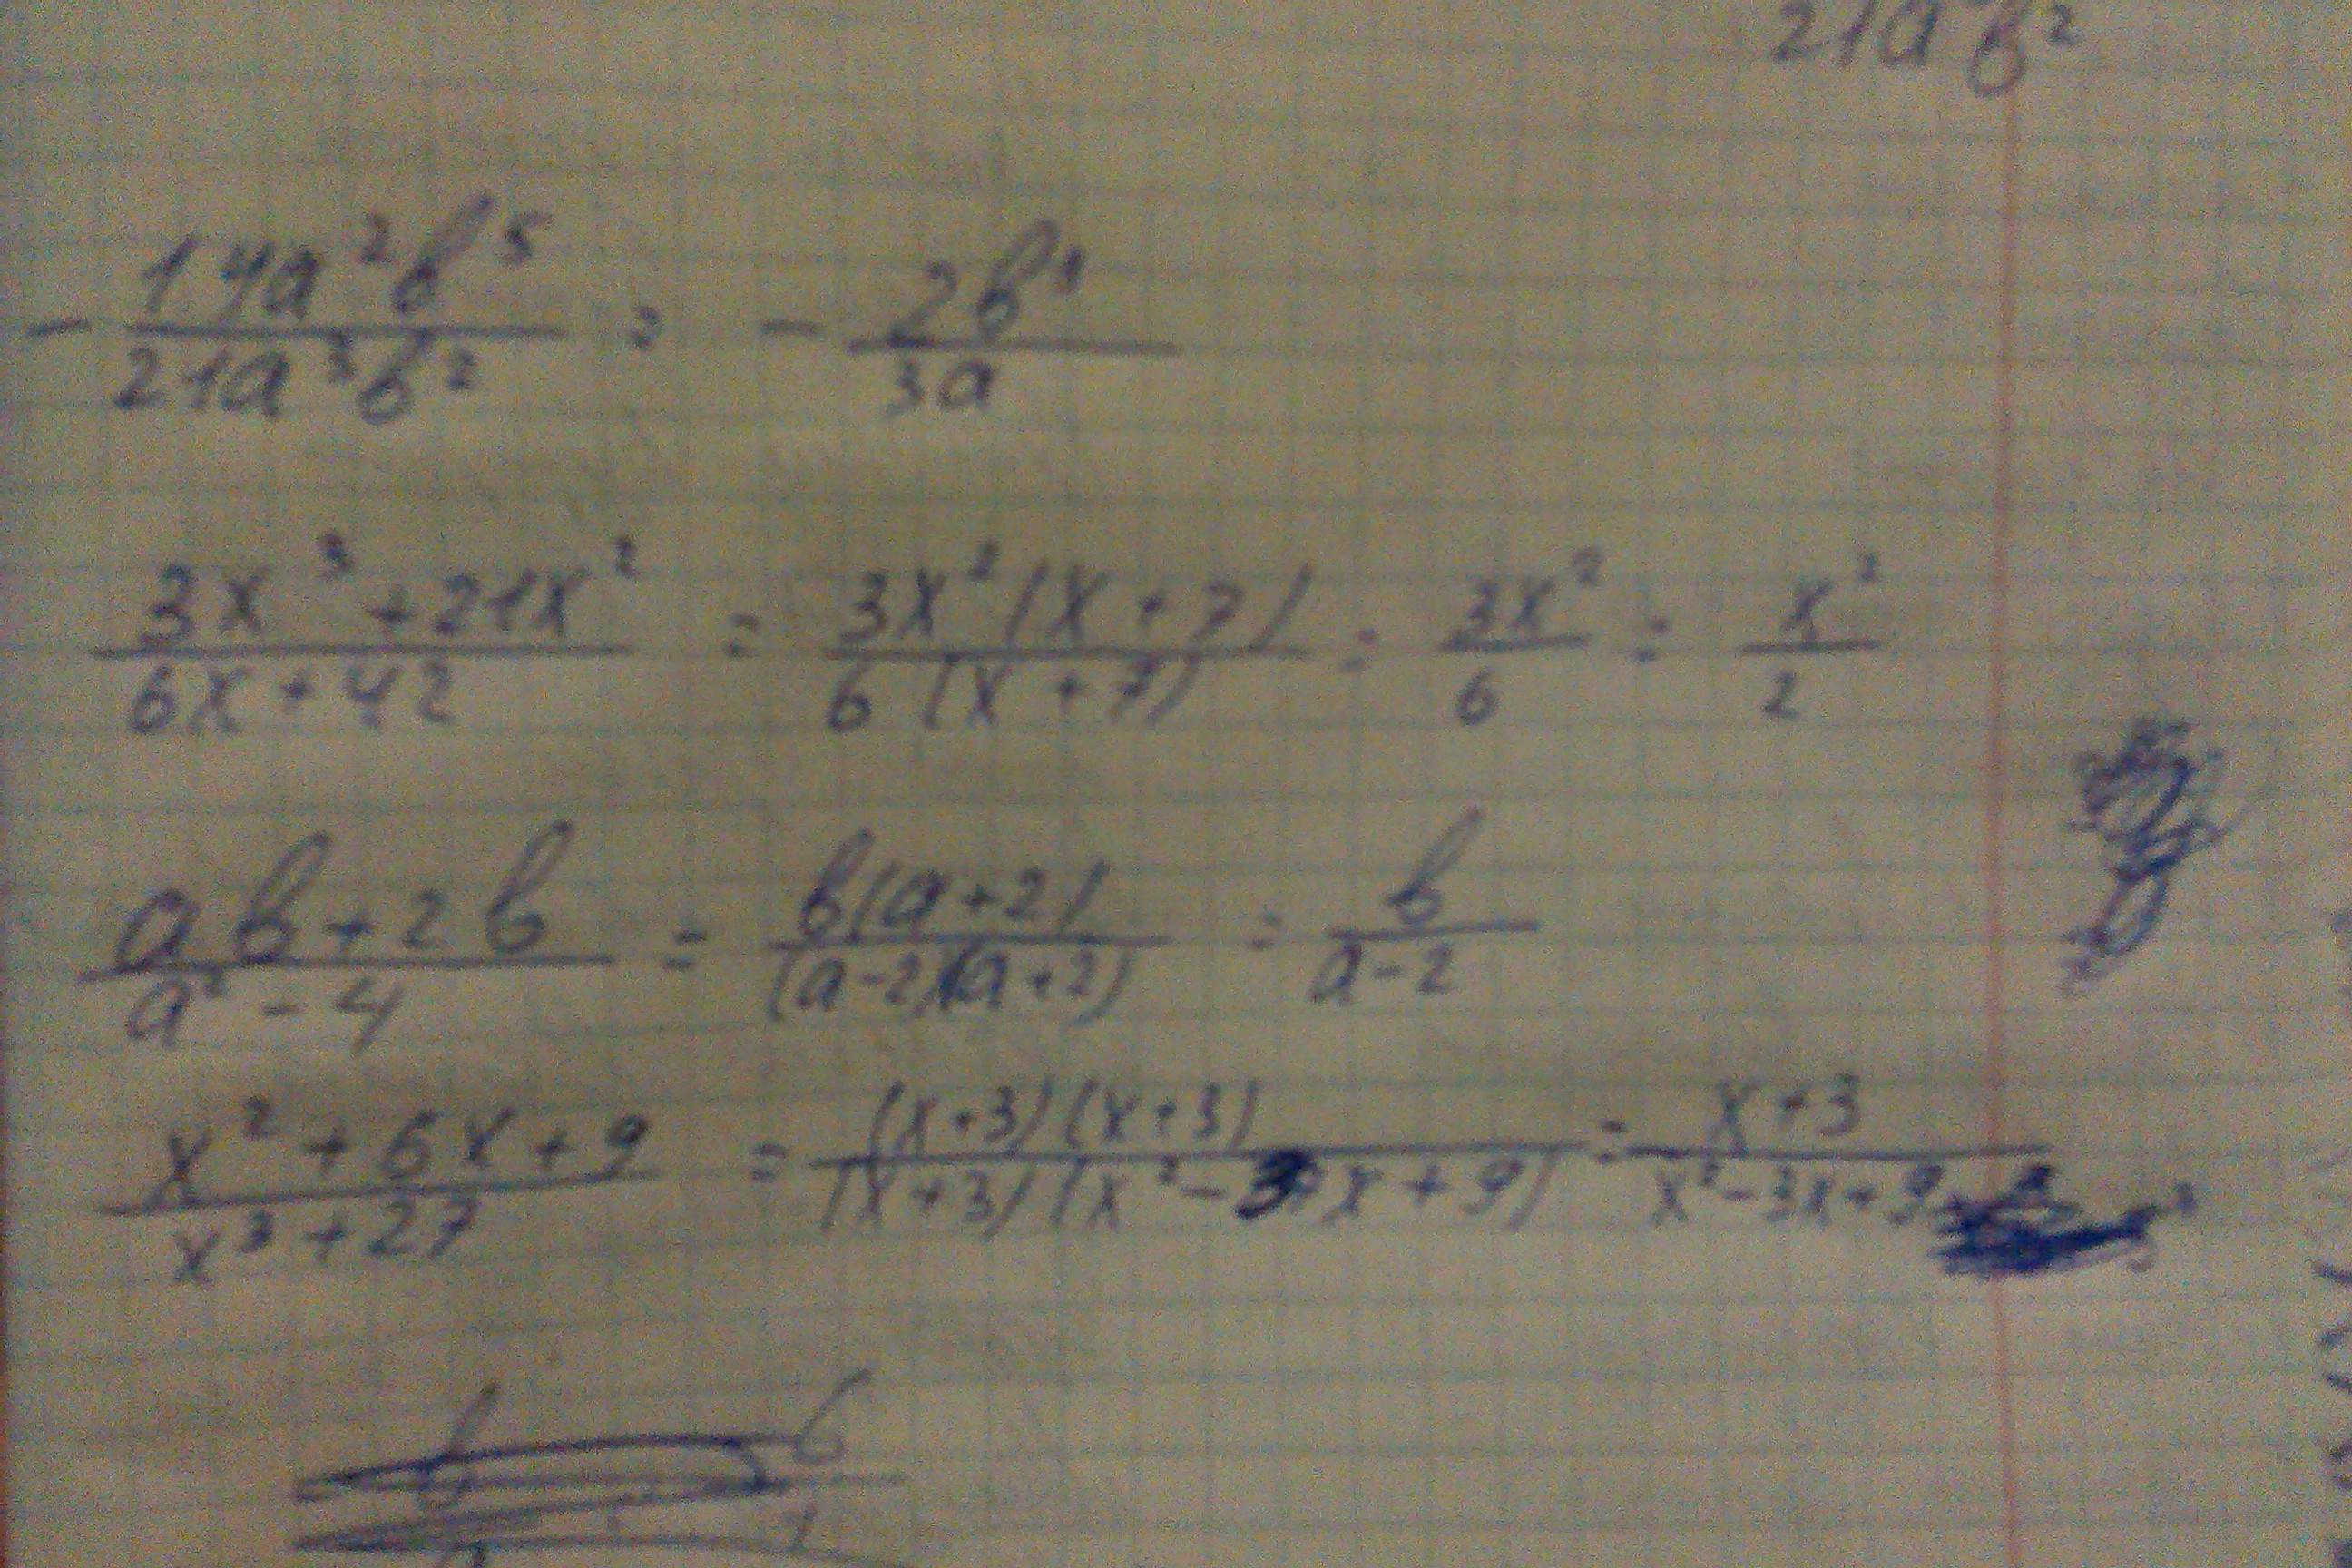 21a b²
- 14a²b⁵ / 21a³b² = - 2b⁴ / 3a
3x³ + 21x² / 6x + 42 = 3x²(x + 7) / 6(x + 7) = 3x² / 6 = x² / 2
ab + 2b / a² - 4 = b(a + 2) / (a - 2)(a + 2) = b / a - 2
x² + 6x + 9 / x³ + 27 = (x + 3)(x + 3) / (x + 3)(x² - 3x + 9) = x + 3 / x² - 3x + 9